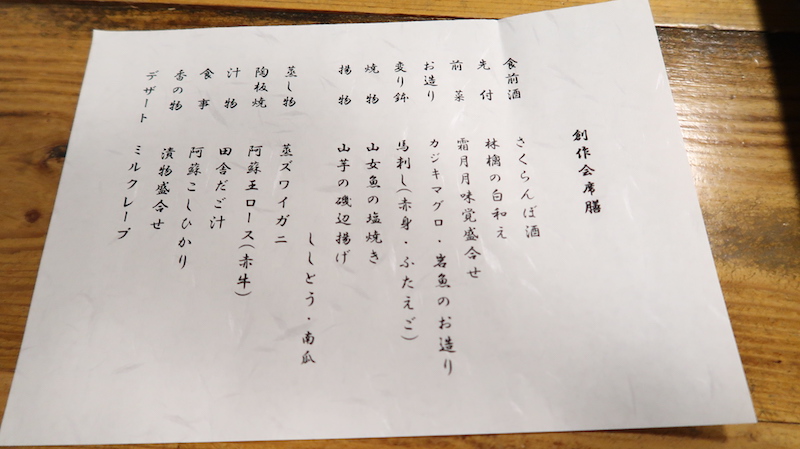 創作会席膳
食前酒 さくらんぼ酒
先付 林檎の白和え
前菜 霜月月味覚盛合せ
お造り カジキマグロ・岩魚のお造り
変り鉢 馬刺し(赤身・ふたえご)
焼物 山女魚の塩焼き
揚物 山芋の磯辺揚げ
ししとう・南瓜
蒸し物 蒸ズワイガニ
陶板焼 阿蘇王ロース(赤牛)
汁物 田舎だご汁
食事 阿蘇こしひかり
香の物 漬物盛合せ
デザート ミルクレープ